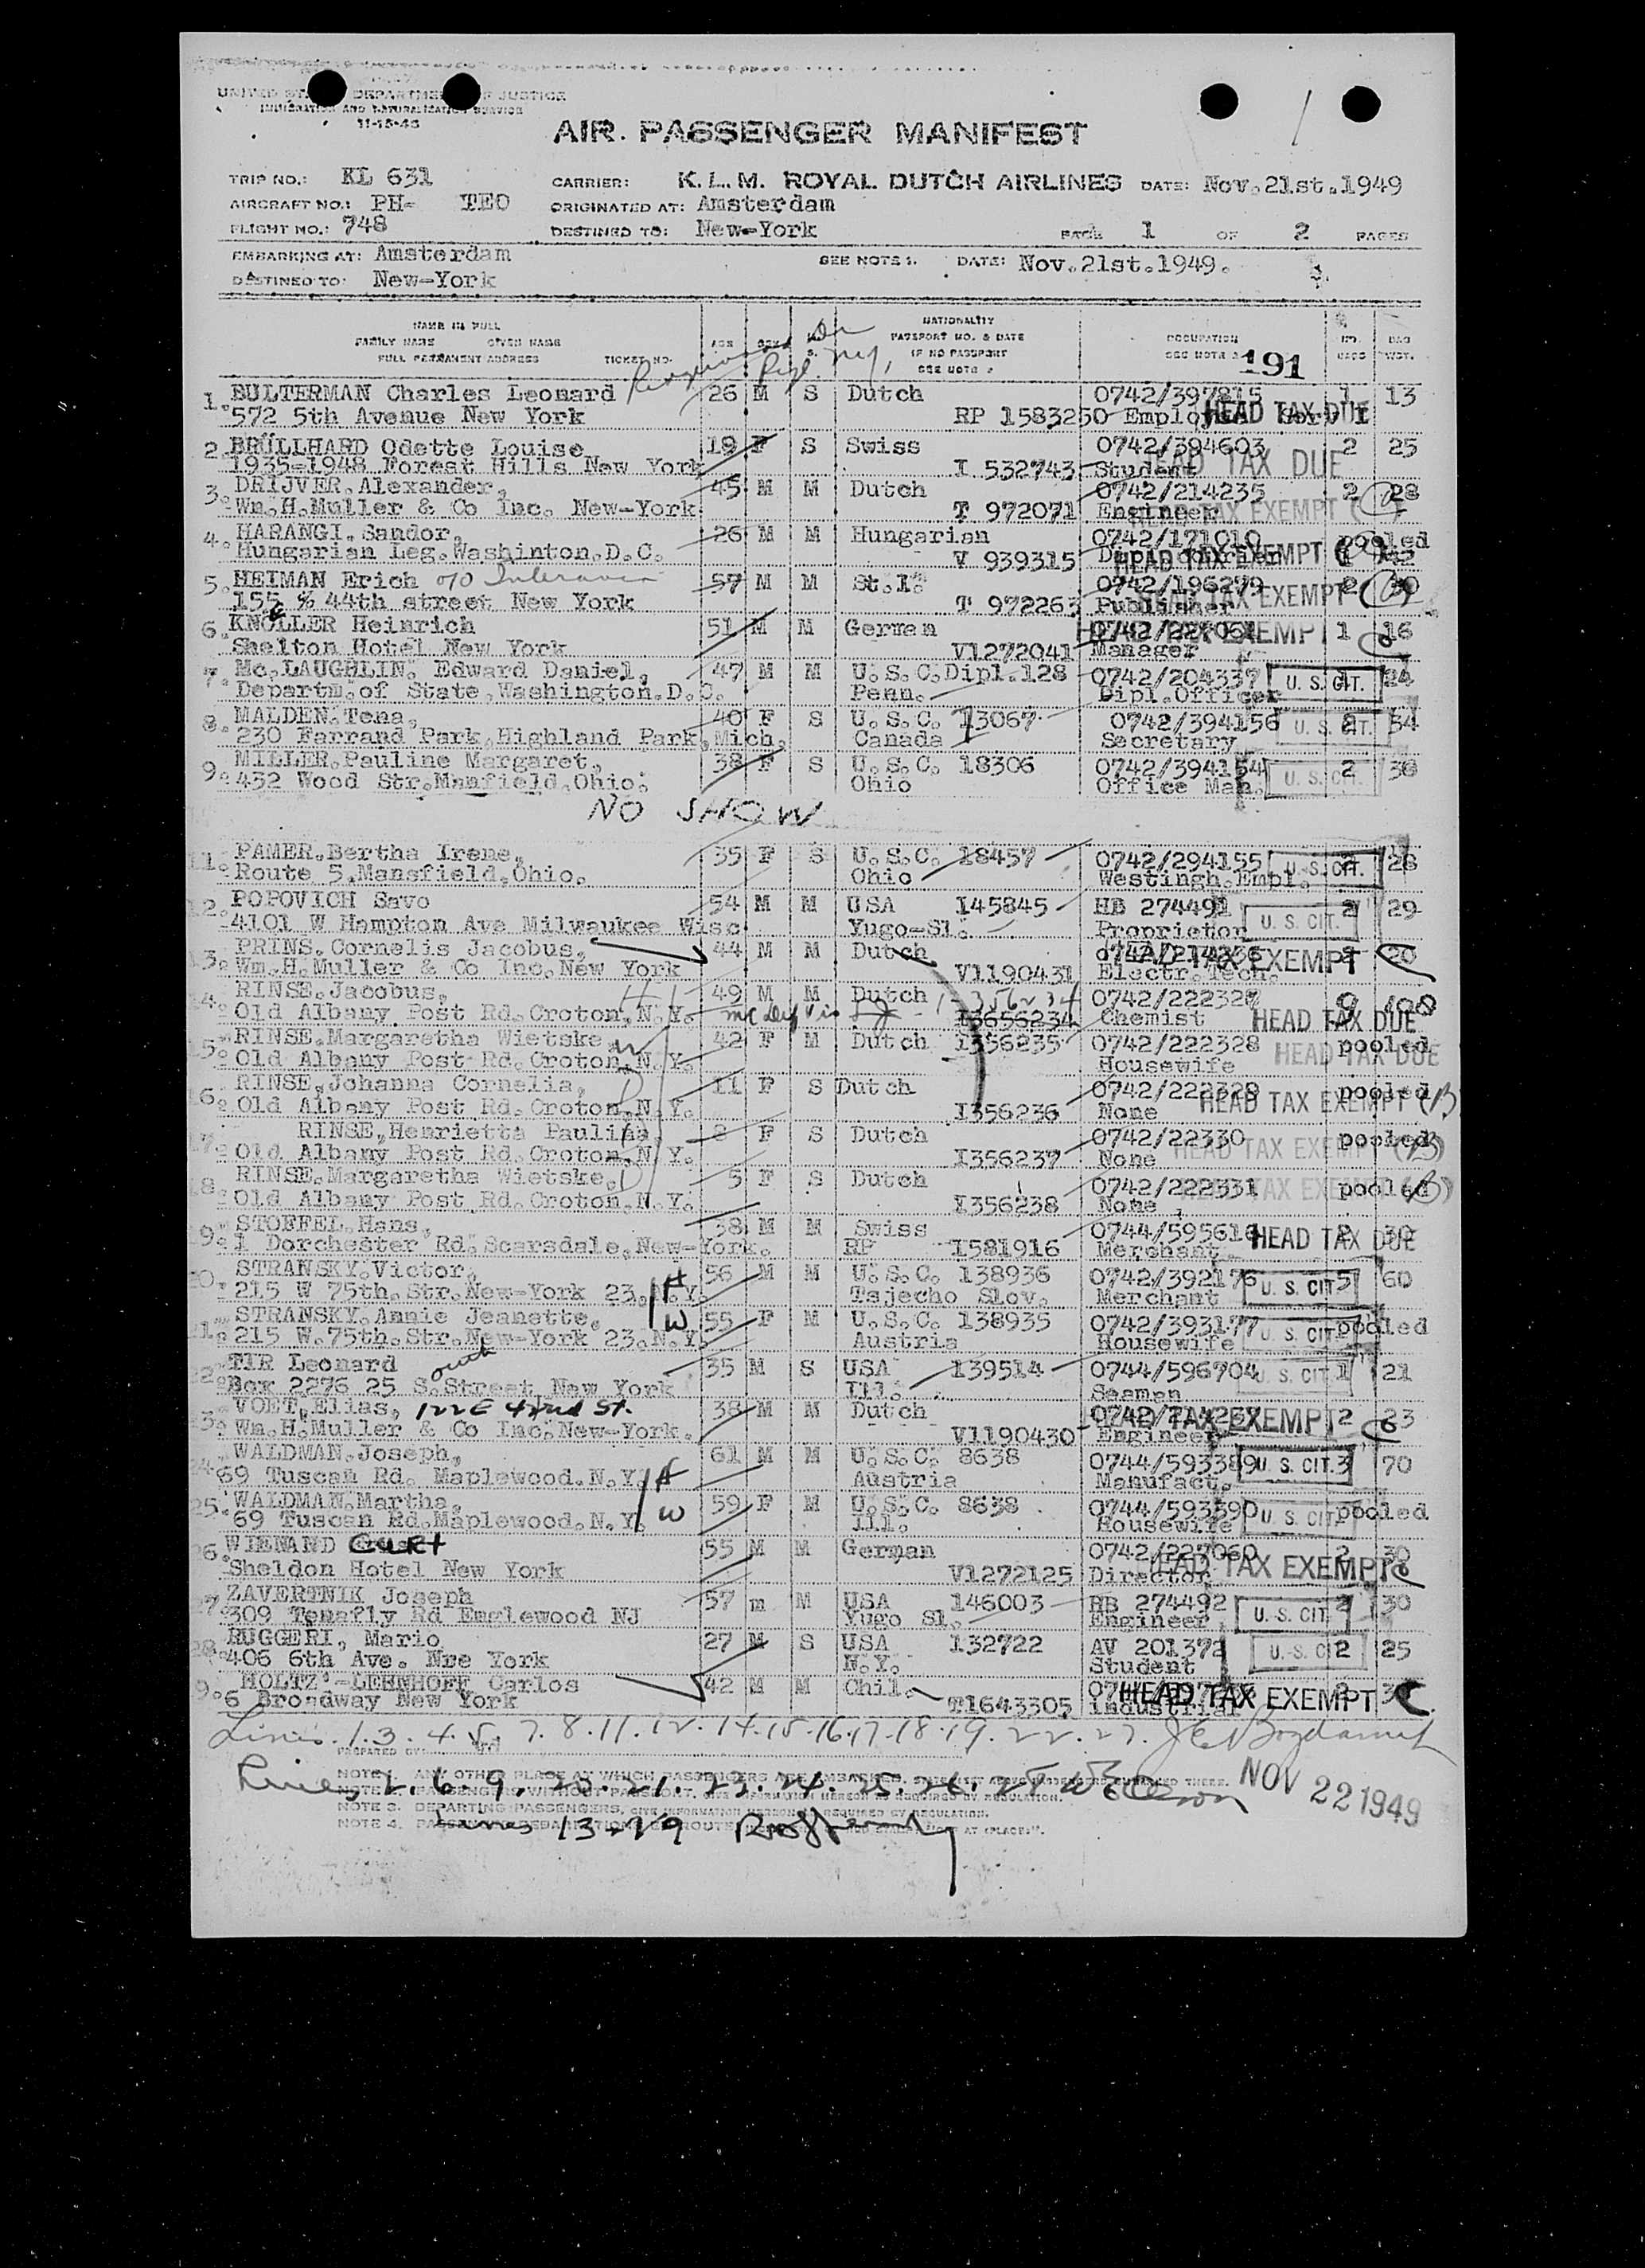 UNITED STATES DEPARTMENT OF JUSTICE
IMMIGRATION AND NATURALIZATION SERVICE
11-15-43
AIR PASSENGER MANIFEST
TRIP NO.: KL 631 CARRIER: K.L.M. ROYAL DUTCH AIRLINES DATE: Nov.21st.1949
AIRCRAFT NO.: PH- TEO ORIGINATED AT: Amsterdam
FLIGHT NO.: 748 DESTINED TO: New-York PAGE 1 OF 2 PAGES
EMBARKING AT: Amsterdam SEE NOTE 1. DATE: Nov.21st.1949.
DESTINED TO: New-York
NAME IN FULL NATIONALITY
FAMILY NAME GIVEN NAME AGE SEX PASSPORT NO. & DATE OCCUPATION NO. BAG
FULL PERMANENT ADDRESS TICKET NO. IF NO PASSPORT SEE NOTE 2 BAGS WGT.
SEE NOTE 2 191
1. BULTERMAN Charles Leonard 26 M S Dutch 0742/397815 1 13
572 5th Avenue New York RP 1583250 HEAD TAX DUE
2. BRÜLLHARD Odette Louise 19 F S Swiss 0742/394603 2 25
1935-1948 Forest Hills New York I 532743 Student HEAD TAX DUE
3. DRIJVER,Alexander, 45 M M Dutch 0742/214235 2 28
Wm.H.Muller & Co Inc. New-York T 972071 Engineer HEAD TAX EXEMPT
4. HARANGI,Sandor, 26 M M Hungarian 0742/171010 pooled
Hungarian Leg.Washinton.D.C. V 939315 HEAD TAX EXEMPT
5. HEIMAN Erich 57 M M St.l. 0742/196279 2 30
155 E 44th street New York T 972263 Publisher HEAD TAX EXEMPT
6. KNOLLER Heinrich 51 M M German HEAD TAX EXEMPT 1 16
Shelton Hotel New York V1272041 Manager
7. Mc.LAUGHLIN. Edward Daniel, 47 M M U.S.C.Dipl.128 0742/204337 U. S. CIT. 24
Departm.of State,Washington.D.C. Penn. Dipl.Officer
8. MALDEN.Tena, 40 F S U.S.C. 13067 0742/394156 U. S. CIT. 2 34
230 Farrand Park,Highland Park,Mich. Canada Secretary
9. MILLER,Pauline Margaret, 38 F S U.S.C. 18306 0742/394154 U. S. CIT. 2 38
432 Wood Str.Manfield,Ohio. Ohio Office Man.
NO SHOW
11. PAMER.Bertha Irene, 35 F S U.S.C. 18457 0742/294155 U. S. CIT. 2 28
Route 5,Mansfield,Ohio. Ohio Westingh.Empl.
12. POPOVICH Savo 54 M M USA 145845 HB 274491 2 29
4101 W Hampton Ave Milwaukee Wisc. Yugo-Sl. Proprietor U. S. CIT.
13. PRINS.Cornelis Jacobus, 44 M M Dutch 0742/214236 2 20
Wm.H.Muller & Co Inc.New York V1190431 Electr.Tech. HEAD TAX EXEMPT
14. RINSE.Jacobus, H 49 M M Dutch 1356234 0742/222327 9 108
Old Albany Post Rd.Croton,N.Y. I3656234 Chemist HEAD TAX DUE
15. RINSE.Margaretha Wietske W 42 F M Dutch I356235 0742/222328 pooled
Old Albany Post Rd.Croton,N.Y. Housewife HEAD TAX DUE
16. RINSE,Johanna Cornelia, D 11 F S Dutch 0742/222329 pooled
Old Albany Post Rd.Croton,N.Y. I356236 None HEAD TAX EXEMPT (B)
17. RINSE,Henrietta Paulina, 8 F S Dutch 0742/22330 pooled
Old Albany Post Rd.Croton,N.Y. I356237 None HEAD TAX EXEMPT (B)
18. RINSE.Margaretha Wietske,D 5 F S Dutch 0742/222331 pooled
Old Albany Post Rd.Croton,N.Y. I356238 None HEAD TAX EXEMPT (B)
19. STOFFEL,Hans, 38 M M Swiss 0744/595616 HEAD TAX DUE 2 30
1 Dorchester Rd.Scarsdale,New-York. RP I581916 Merchant
20. STRANSKY.Victor, H 56 M M U.S.C. 138936 0742/392176 U. S. CIT. 5 60
215 W 75th.Str.New-York 23.N.Y. Tsjecho Slov. Merchant
21. STRANSKY.Annie Jeanette, W 55 F M U.S.C. 138935 0742/393177 pooled
215 W.75th.Str.New-York 23.N.Y. Austria Housewife U. S. CIT.
22. TIR Leonard 35 M S USA 139514 0744/596704 U. S. CIT. 1 21
Box 2276 25 South Street New York Ill. Seaman
23. VOET,Elias, 122 E 42nd St. 38 M M Dutch HEAD TAX EXEMPT 2 23
Wm.H.Muller & Co Inc.New-York. V1190430 Engineer
24. WALDMAN.Joseph, H 61 M M U.S.C. 8638 0744/593389 U. S. CIT. 3 70
69 Tuscan Rd. Maplewood.N.Y. Austria Manufact.
25. WALDMAN.Martha, W 59 F M U.S.C. 8638 0744/593390 pooled
69 Tuscan Rd.Maplewood.N.Y. Ill. Housewife U. S. CIT.
26. WIENAND CURT 55 M M German 0742/227060 2 30
Sheldon Hotel New York V1272125 Director HEAD TAX EXEMPT
27. ZAVERTNIK Joseph 57 m M USA 146003 HB 274492 2 30
309 Tenafly Rd Englewood NJ Yugo Sl. Engineer U. S. CIT.
28. RUGGERI, Mario 27 M S USA 132722 AV 201372 U. S. CIT. 2 25
406 6th Ave. Nre York N.Y. Student
29. HOLTZ'-LEHNHOFF Carlos 42 M M Chil.
6 Broadway New York T1643305 industrial HEAD TAX EXEMPT
Lines. 1.3.4.5.7.8.11.12.14.15.16.17.18.19.22.27.
PREPARED BY:
Lines 2.6.9.20.21.23.24.25.26.28
NOV 22 1949
NOTE 3. DEPARTING PASSENGERS, GIVE INFORMATION HEREON AS REQUIRED BY REGULATION.
NOTE 4.
Lines 13-29